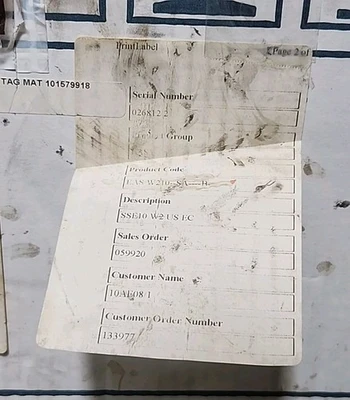 PrintLabel
Page 2 of
TAG MAT 101579918
Serial Number
026812 2
Group
Product Code
Description
SSE10 W2 US EC
Sales Order
059920
Customer Name
10AE08 1
Customer Order Number
133977